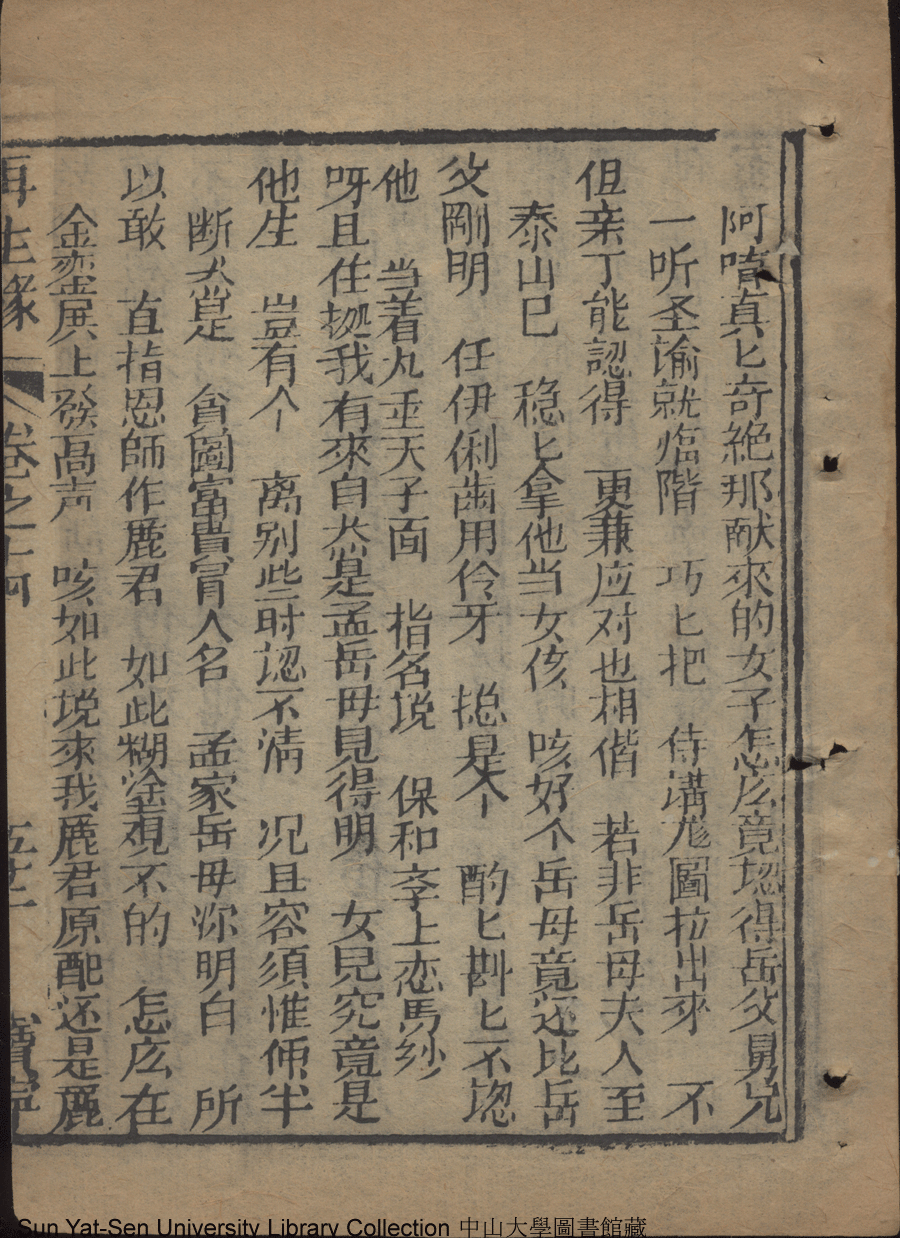 阿唷真匕奇絶那献來的女子怎広竟認得岳父舅兄
一听圣谕就临階　巧匕把　侍講龙圖拉出來　不
但亲丁能認得　更兼应对也相偕　若非岳母夫人至
泰山巳　稳匕拿他当女孩　咳好个岳母竟还比岳
父剛明　任伊俐齒用伶牙　揔是个　酌匕斟匕不認
他　当着九重天子面　指名说　保和孛上恋馬纱
呀且住拠我有來自然是孟岳母見得明　女兒究竟是
他生　豈有个　离别些时認不清　况且容須惟傾半
断然是　貪圖富貴冒人名　孟家岳母你明白　所
以敢　直指恩師作麗君　如此糊塗覌不的　怎広在
金銮展上發高声　咳如此说來我麗君原配还是麗
再生缘　卷之十四　五十一　寳寧
Sun Yat-Sen University Library Collection 中山大學圖書館藏